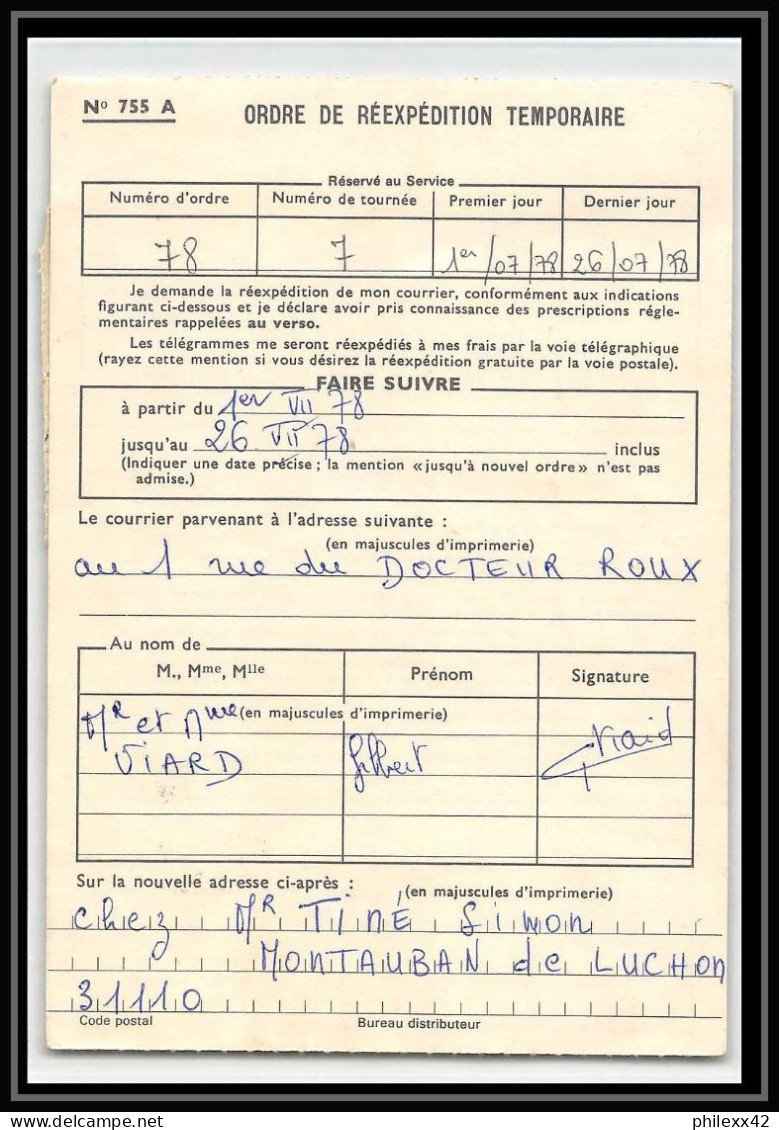 Nº 755 A
ORDRE DE RÉEXPÉDITION TEMPORAIRE
Réservé au Service
Numéro d'ordre Numéro de tournée Premier jour Dernier jour
78 7 1er/07/78 26/07/78
Je demande la réexpédition de mon courrier, conformément aux indications
figurant ci-dessous et je déclare avoir pris connaissance des prescriptions régle-
mentaires rappelées au verso.
Les télégrammes me seront réexpédiés à mes frais par la voie télégraphique
(rayez cette mention si vous désirez la réexpédition gratuite par la voie postale).
FAIRE SUIVRE
à partir du 1er VII 78
jusqu'au 26 VII 78 inclus
(Indiquer une date précise ; la mention «jusqu'à nouvel ordre» n'est pas
admise.)
Le courrier parvenant à l'adresse suivante :
(en majuscules d'imprimerie)
au 1 rue du DOCTEUR ROUX
Au nom de
M., Mme, Mlle Prénom Signature
(en majuscules d'imprimerie)
Mr et Mme
VIARD Gilbert Viard
Sur la nouvelle adresse ci-après : (en majuscules d'imprimerie)
chez Mr TINÉ Simon
MONTAUBAN de LUCHON
31110
Code postal Bureau distributeur
philexx42